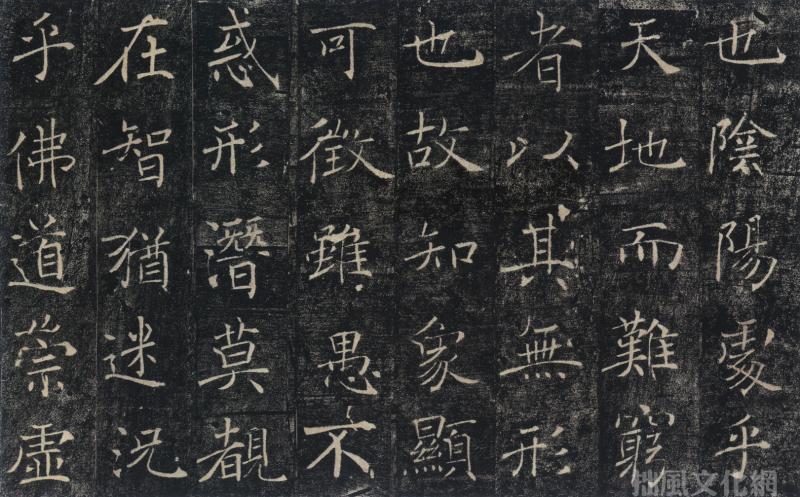 也陰陽處乎
天地而難窮
者以其無形
也故知象顯
可徵雖愚不
惑形潛莫覩
在智猶迷況
乎佛道崇虛
拙風文化網